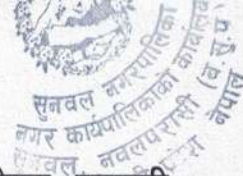 सुनवल नगरपालिका
नगर कार्यपालिकाको कार्यालय
सुनवल, नवलपरासी (ब.सु.प)
नेपाल